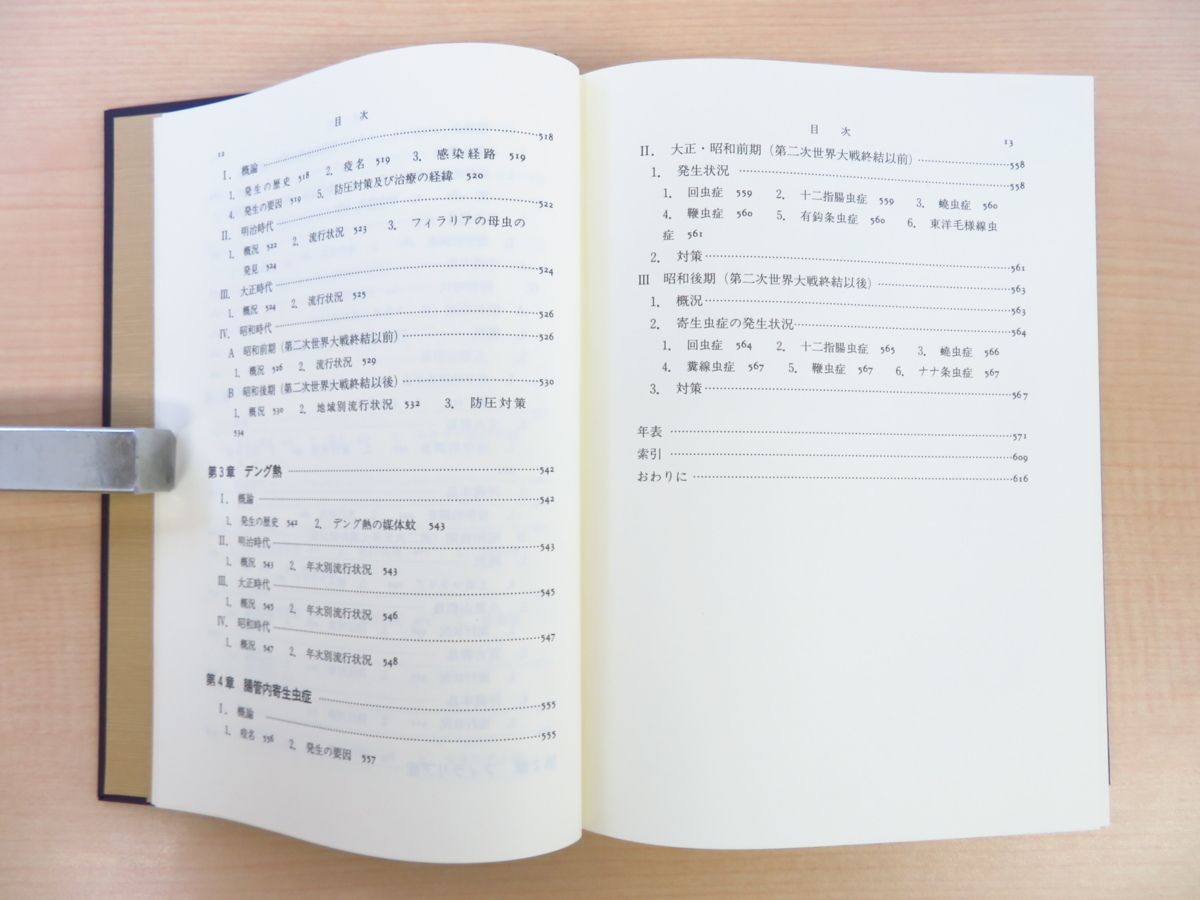 目 次
12
I. 概論 518
1. 発生の歴史 518 2. 疫名 519 3. 感染経路 519
4. 発生の要因 519 5. 防圧対策及び治療の経緯 520
II. 明治時代 522
1. 概況 522 2. 流行状況 523 3. フィラリアの母虫の
発見 524
III. 大正時代 524
1. 概況 524 2. 流行状況 525
IV. 昭和時代 526
A 昭和前期（第二次世界大戦終結以前） 526
1. 概況 526 2. 流行状況 529
B 昭和後期（第二次世界大戦終結以後） 530
1. 概況 530 2. 地域別流行状況 532 3. 防圧対策
534
第3章 デング熱 542
I. 概論 542
1. 発生の歴史 542 2. デング熱の媒体蚊 543
II. 明治時代 543
1. 概況 543 2. 年次別流行状況 543
III. 大正時代 545
1. 概況 545 2. 年次別流行状況 546
IV. 昭和時代 547
1. 概況 547 2. 年次別流行状況 548
第4章 腸管内寄生虫症 555
I. 概論 555
1. 疫名 556 2. 発生の要因 557
目 次
13
II. 大正・昭和前期（第二次世界大戦終結以前） 558
1. 発生状況 558
1. 回虫症 559 2. 十二指腸虫症 559 3. 蟯虫症 560
4. 鞭虫症 560 5. 有鈎条虫症 560 6. 東洋毛様線虫
症 561
2. 対策 561
III 昭和後期（第二次世界大戦終結以後） 563
1. 概況 563
2. 寄生虫症の発生状況 564
1. 回虫症 564 2. 十二指腸虫症 565 3. 蟯虫症 566
4. 糞線虫症 567 5. 鞭虫症 567 6. ナナ条虫症 567
3. 対策 567
年表 571
索引 609
おわりに 616